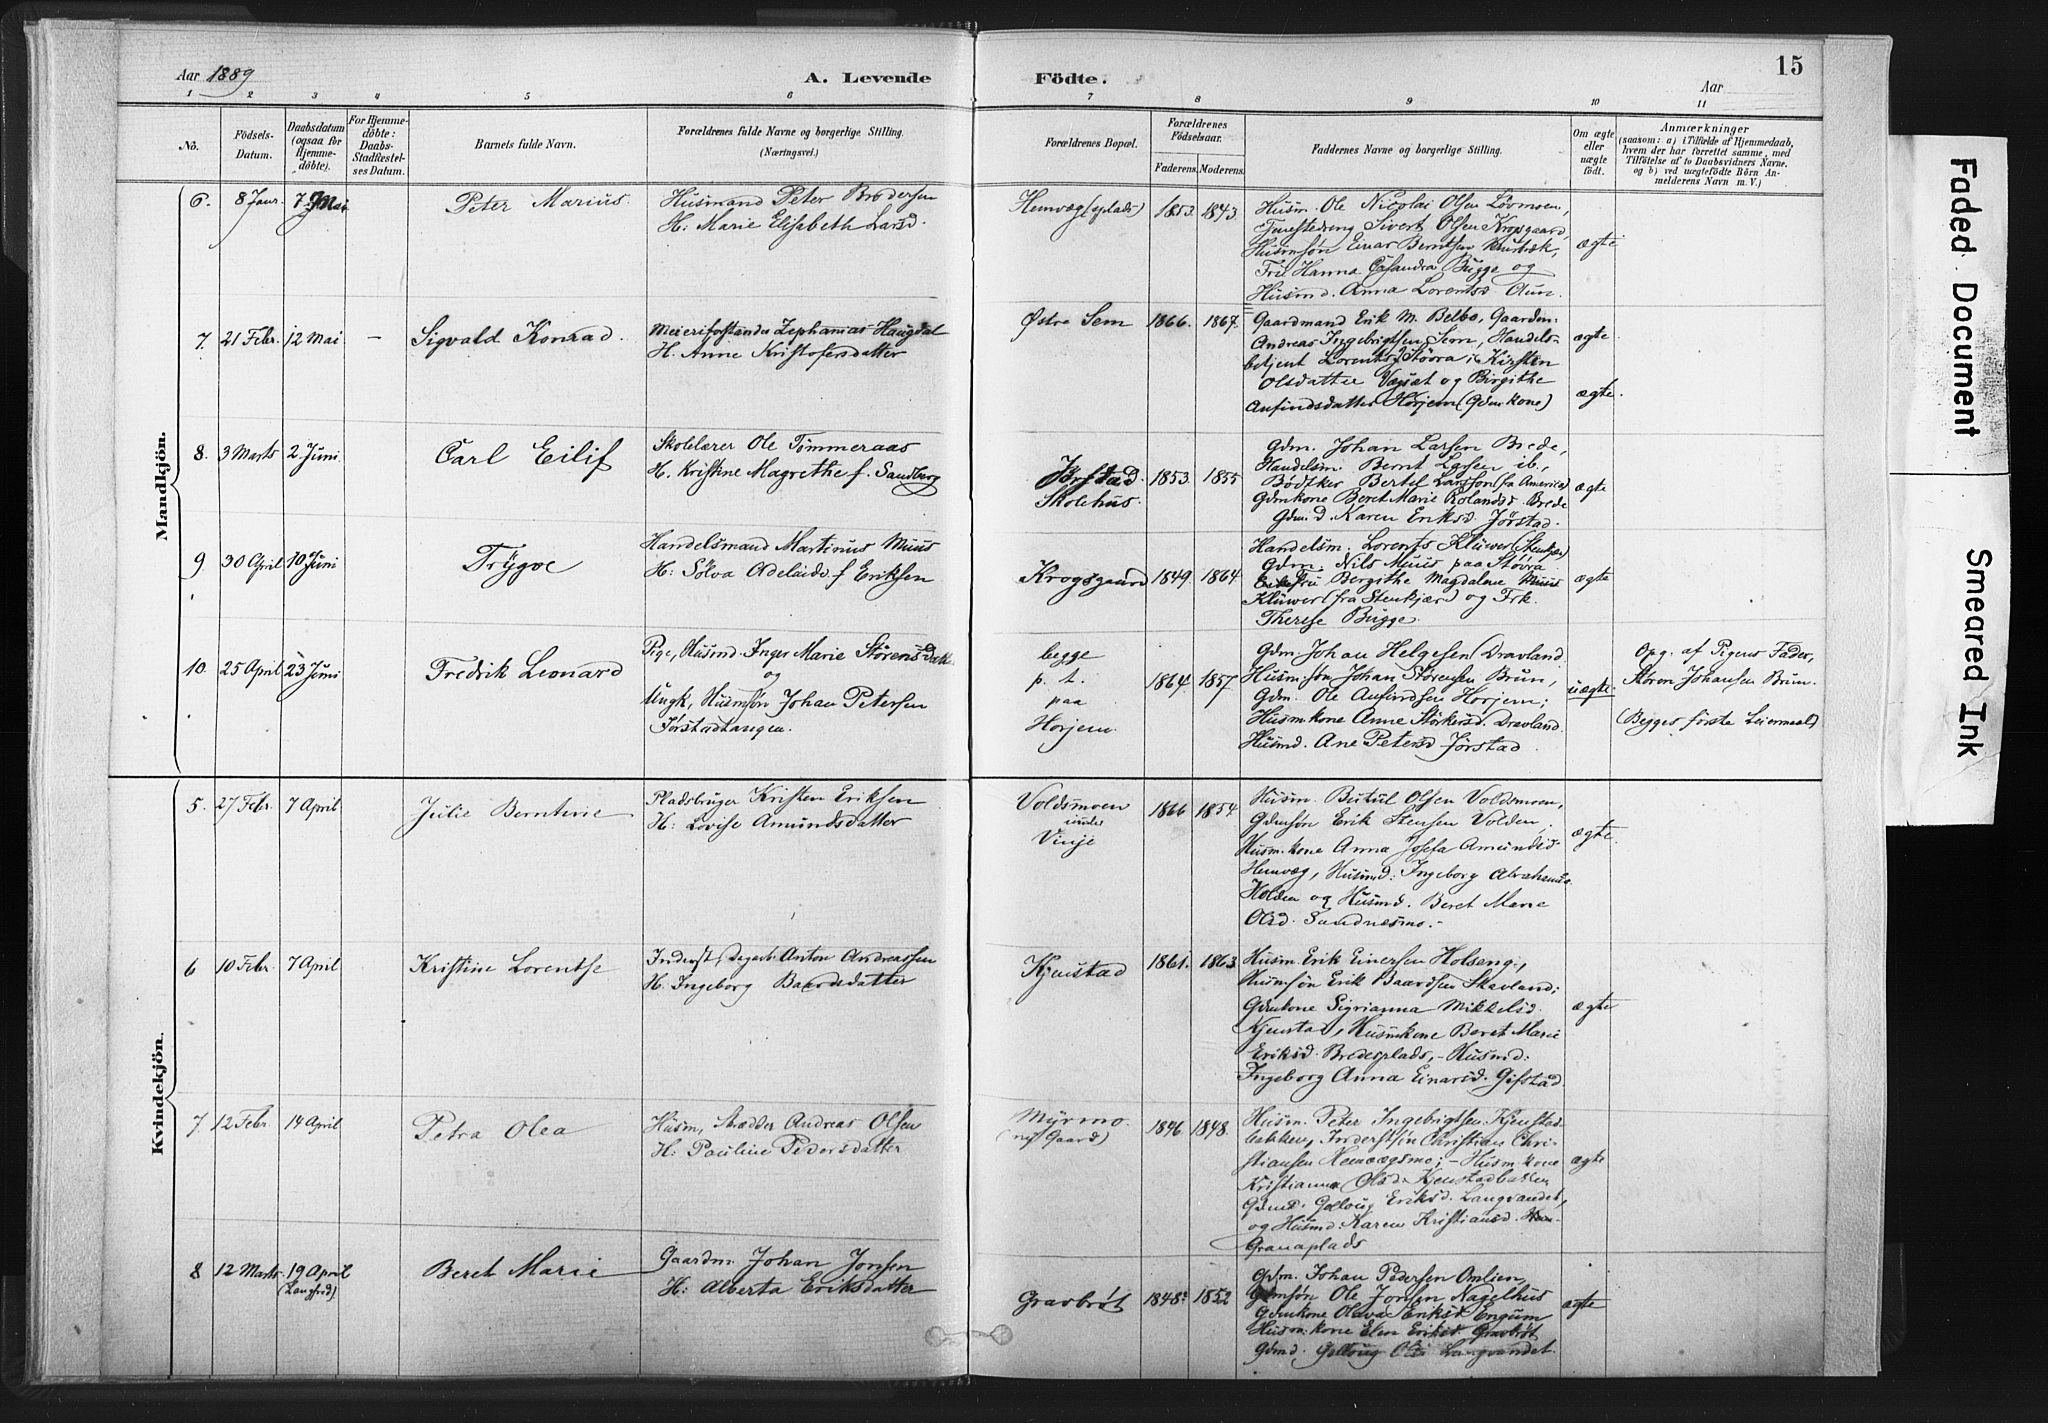 Aar 1889
A. Levende Födte.
Aar
15
1 2 3 4 5 6 7 8 9 10 11
No.
Födsels-Datum.
Daabsdatum (ogsaa for Hjemmedöbte).
For Hjemmedöbte: Daabs-Stadfæstelses Datum.
Barnets fulde Navn.
Forældrenes fulde Navne og borgerlige Stilling.
(Næringsvei.)
Forældrenes Bopæl.
Forældrenes Födselsaar.
Faderens. Moderens.
Faddernes Navne og borgerlige Stilling.
Om ægte eller uægte födt.
Anmærkninger
(saasom: a) i Tilfælde af Hjemmedaab,
hvem der har forrettet samme, med
Tilföielse af to Daabsvidners Navne,
og b) ved uegtefödte Börn Anmelderens Navn m. V.)
Mandkjön.
6. 8 Janr. 7 Mai Peter Marius.
Husmand Peter Brodersen
H: Marie Elisabeth Larsd.
Hemvæg (plads) 1853. 1843.
Husm. Ole Nicolai Olsen Lövmoen,
Tjenestedreng Sivert Olsen Krogsgaard,
Husmsøn Einar Berntsen
Fru Hanna Casandra Bugge og
Husmd. Anna Lorentsd Aun.
ægte
7. 21 Febr. 12 Mai – Sigvald Konrad.
Meieriforstander Zephanias Haugdal
H. Anne Kristofersdatter
Østre Sem 1866. 1867.
Gaardmand Erik M. Belbo, Gaardm:
Andreas Ingebrigtsen Sem, Handels-
betjent Lorents Støvra; Kirsten
Olsdatter Vægset og Birgithe
Anfindsdatter Horjem (Gdmkone)
ægte
ægte.
8. 3 Marts 2 Juni Carl Eilif
Skolelærer Ole Tömmeraas
H. Kristine Magrethe f. Sandberg
Jørstad Skolehus. 1853. 1855
Gdm. Johan Larsen Brede,
Handelsm. Bernt Larsen ib.,
Bødtker Bertil Larsson (fra Amerika)
Gdmkone Beret Marie Rolandsd Brede
Gdm. d. Karen Eriksd Jörstad.
ægte
9 30 April 10 Juni Trÿgve
Handelsmand Martinus Muus
H: Sölva Adelaide f Eriksen
Krogsgaard 1849 1864
Handelsm. Lorents Klüwer (Stenkjær)
Gdm. Nils Muus paa Støvra
Fru Bergithe Magdalene Muus
Klüwer (fra Stenkjær) og Frk.
Therese Bugge.
ægte
10. 25 April 23 Juni Fredrik Leonard
Pige, Husmd. Inger Marie Störensdatt.
og
Ungk, Husmsøn Johan Petersen
Jörstadtangen.
begge
p. t.
paa
Horjem.
1864 1857
Gdm. Johan Helgesen Dravland
Husm. søn Johan Störensen Brun,
Gdm. Ole Anfindsen Horjem;
Husm. kone Anne Störkersd. Dravland
Husmd. Ane Petersd Jörstad.
uægte.
Opg. af Pigens Fader,
Stören Johansen Brun.
(Begges første Leiermaal)
Kvindekjön.
5. 27 Febr. 7 April Julie Berntine
Pladsbruger Kristen Eriksen
H: Lovise Amundsdatter
Voldsmoen
under
Vinje
1866 1854.
Husm. Butul Olsen Voldsmoen,
Gdmsøn Erik Stensen Volden,
Husm. kone Anna Josefa Amundsd
Hemvæg, Husmd: Ingeborg Abrahamsd.
Holden og Husmd. Beret Marie
Olsd. Sandnesmo.-
ægte.
6 10 Febr. 7 April Kristine Lorentse
Inderst, Dagarb. Anton Andreassen
H. Ingeborg Baardsdatter
Kjenstad 1861. 1863
Husm. Erik Einersen Holseng,
Husmsøn Erik Baardsen Skavland;
Gdmkone Sigrianna Mikkelsd.
Kjenstad, Husmkone Beret Marie
Eriksd. Bredesplads, - Husmd:
Ingeborg Anna Einarsd. Gifstad
ægte
7. 12 Febr. 14 April Petra Olea
Husm, Skrædder Andreas Olsen
H: Pauline Pedersdatter
Myrmo.
(ny Gaard)
1846. 1848.
Husm. Peter Ingebrigtsen Kjenstad-
bakken, Inderstsön Christian Chri-
stiansen Hemvægsmo; - Husm kone
Kristianna Olsd. Kjenstadbakken
Gdmd. Golloug Eriksd. Langvandet,
og Husmd. Karen Kristiansd.
Granaplads
ægte
8 12 Marts 19 April (Langfred) Beret Marie
Gaardm. Johan Jonsen
H: Alberta Eriksdatter
Gravbröt 1848. 1852
Gdm. Johan Pedersen Omlien,
Gdmsøn Ole Jonsen Nagelhus
Gdmkone Olava Eriksd Engum
Husm: kone Elen Eriksd. Gravbröt
Gdmd. Golloug Olsd Langvandet.
ægte
Faded Document
Smeared Ink